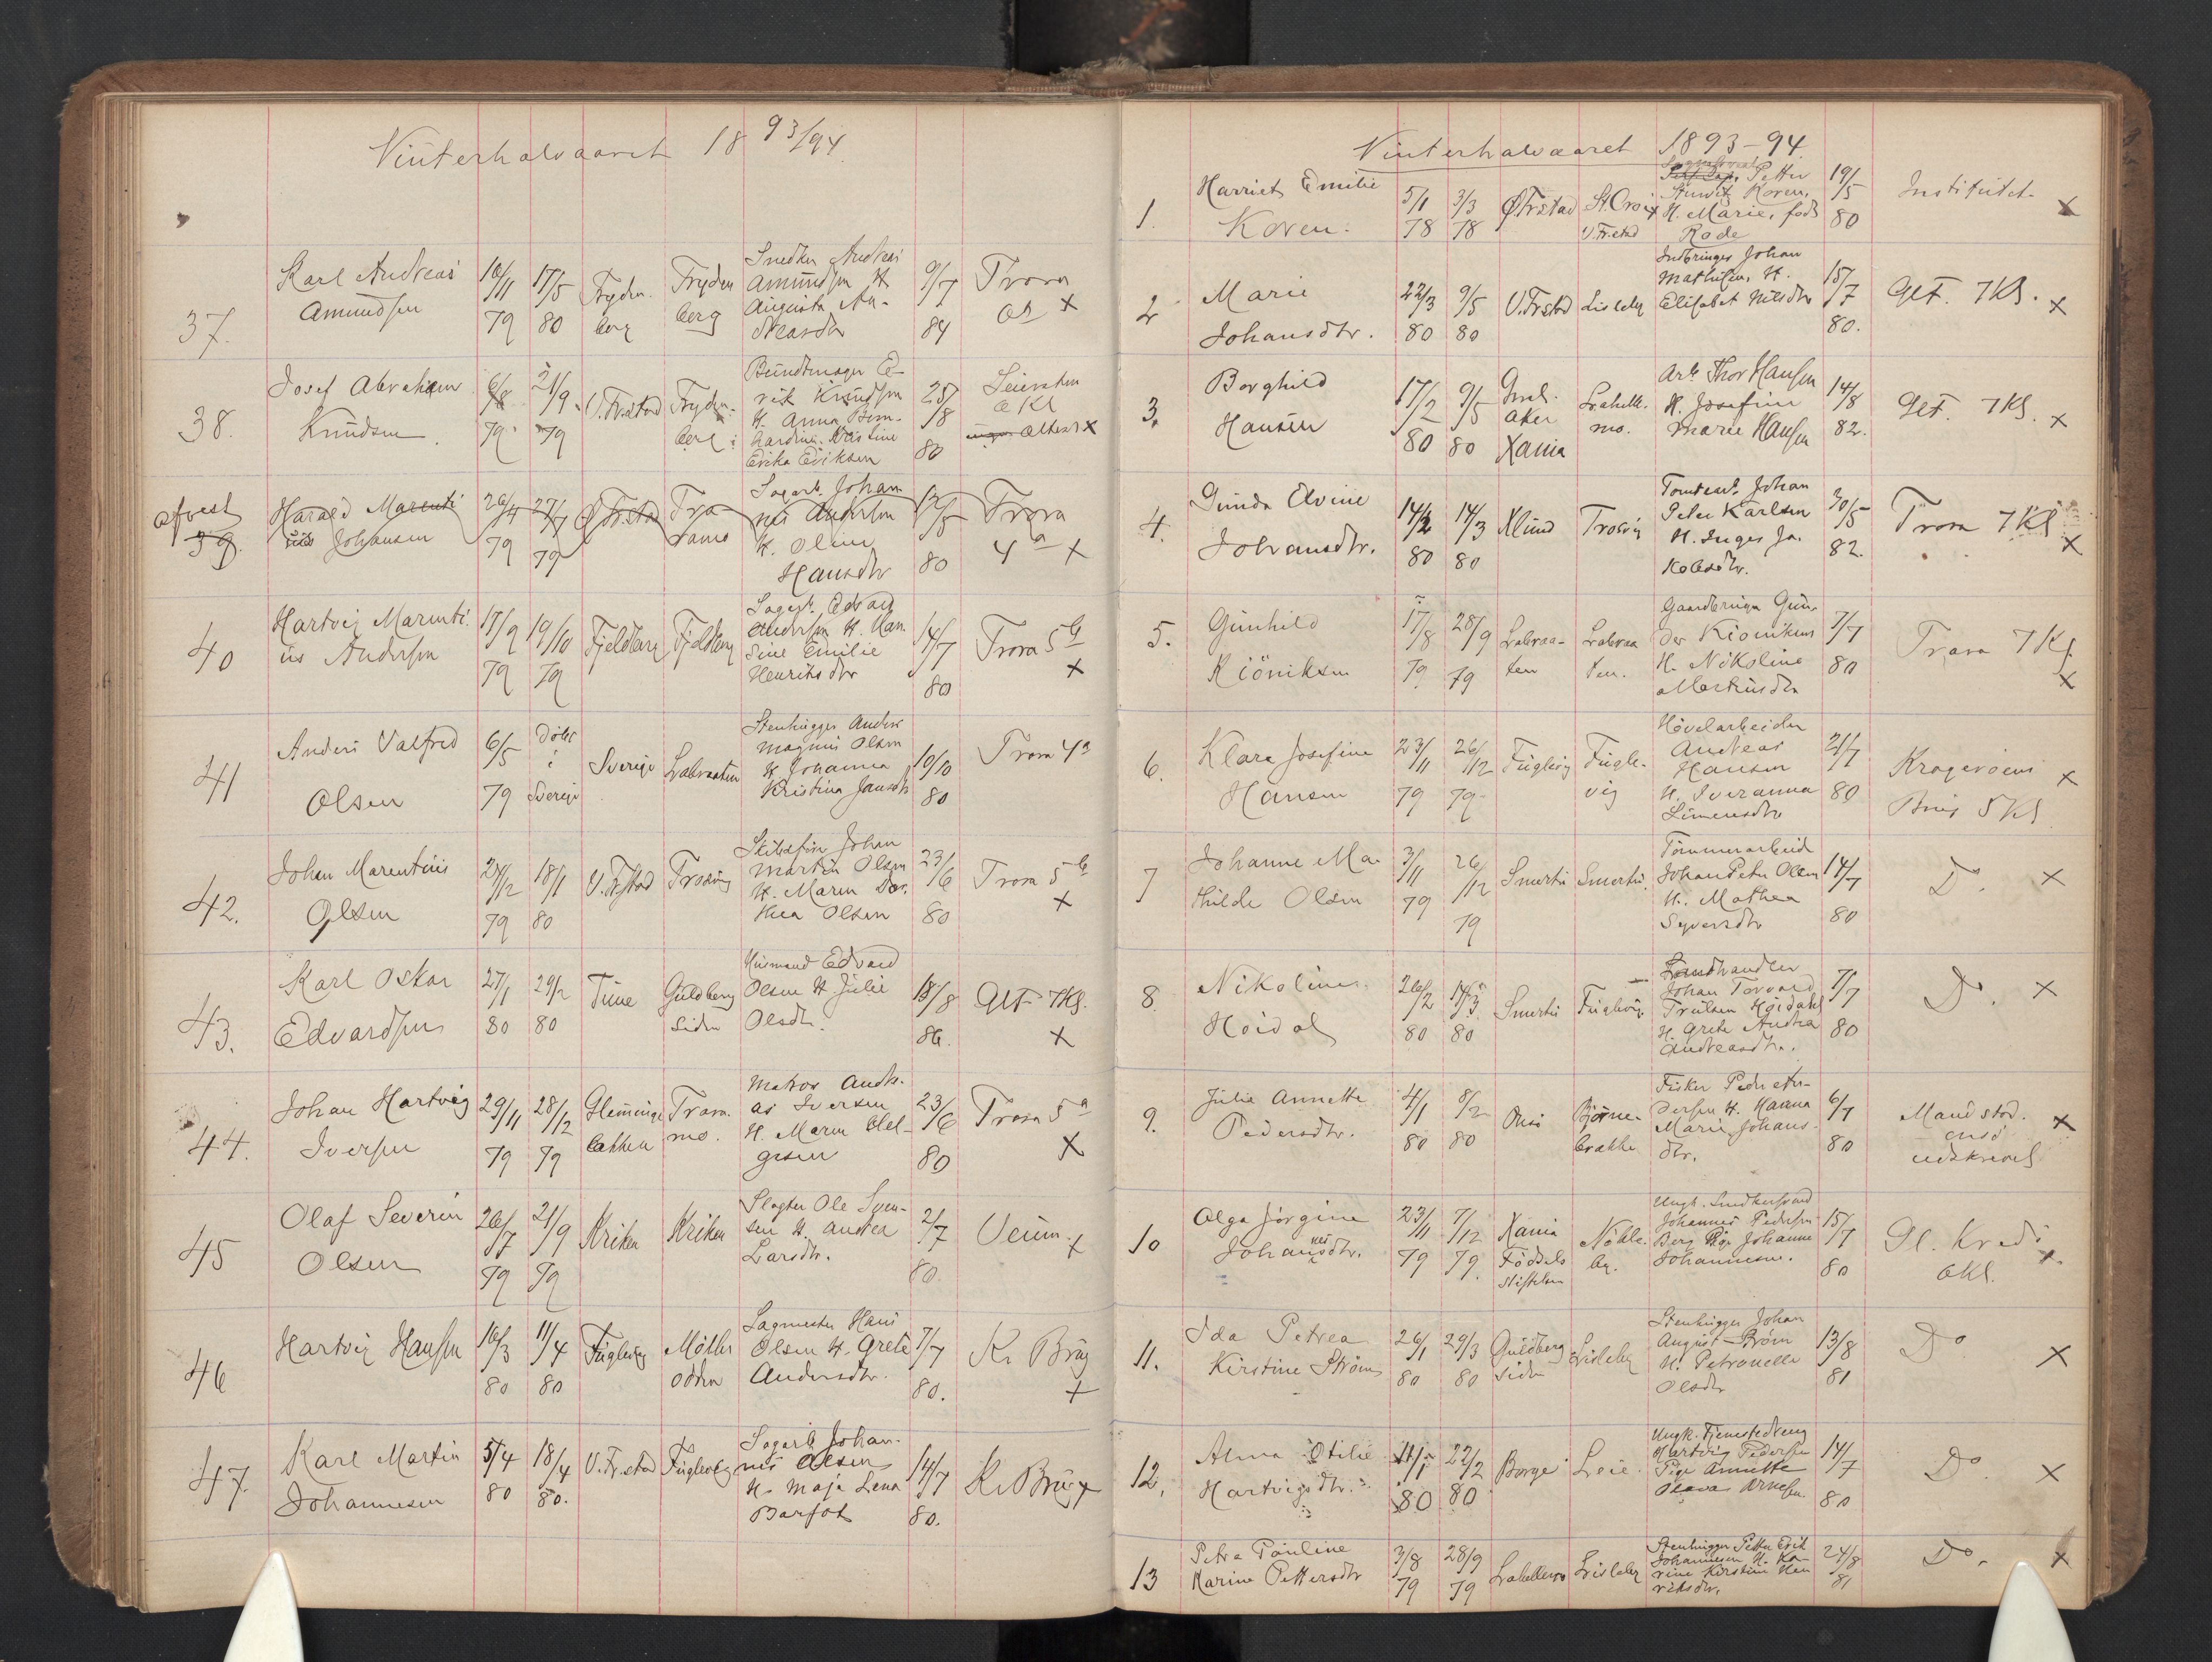 Vinterhalvaaret 18 93/94
37. Karl Andreas Amundsen 16/11 79 17/5 80 Frydenberg Frydenberg Snedker Andreas Amundsen H. Augusta Andreasdtr 9/7 84 Trara x
38. Josef Abraham Knudsen 6/8 79 21/9 79 V. Frstad Frydenberg Bundtmager Erik Knudsen H. Anna Bernhardine Kristine Erika Eriksen 25/8 80 x
39. Harald Marentius Johansen 26/4 79 27/7 79 Ø Frstad Sagarb. Johannes Andersen H. Oline Hansdtr 12/5 80 Trara 4a x
40 Hartvig Marentius Andersen 17/9 79 19/10 79 Fjeldberg Fjeldberg Sagarb. Edvard Andersen H. Hansine Emilie Henriksdtr 14/7 80 Trara 5b x
41 Anders Valfred Olsen 6/5 79 Döbt i Sverige Sverige Labraaten Stenhugger Anders Magnus Olsen H. Johanna Kristina Jansdtr 19/10 80 Trara 4a
42. Johan Marentius Olsen 24/12 79 18/1 80 V. Frstad Trosvig Skibsförer Johan Martin Olsen H. Maren Dorthea Olsen 23/6 80 Trara 5b x
43. Karl Oskar Edvardsen 27/1 80 29/2 80 Tune Guldbergsiden Husmand Edvard Olsen H. Julie Olsdtr. 18/8 86. Glf 7Kl. x
44. Johan Hartvig Iversen 29/11 79 28/12 79 Glemmingebakken Traramo. Matros Andreas Iversen H. Maren Helgesen 23/6 80 Trara 5a x
45 Olaf Severin Olsen 26/7 79 21/9 79 Kriken Kriken Slagter Ole Svensen H. Andrea Larsdtr. 2/7 80. Veum. x
46 Hartvig Hansen 16/3 80 11/4 80 Fuglevig Mölleodden Sagmester Hans Olsen H. Grete Andersdtr. 7/7 80. Kr Brug x
47. Karl Martin Johannesen 5/4 80 18/4 80. V. Fr.stad Fuglevig Sagarb. Johannes Olsen H. Maja Lena Barfot 14/7 80. Kr Brug x
Vinterhalvaaret 1893-94
1. Harriet Emilie Koren. 5/1 78 3/3 78 Ø Frstad St. Croix V. Fr.stad Petter Koren, H. Marie, föd Rode 19/5 80 Institutet. x
2 Marie Johansdtr. 22/3 80 9/5 80 V. Frstad Lisleby Indbringer Johan Mathisen, H. Elisabet Nilsdtr 15/7 80. Glf. 7Kl. x
3. Borghild Hansen 17/2 80 9/5 80 Kania Labellemo. Arb. Thor Hansen H. Josefine Marie Hansen 14/8 82. Glf. 7Kl. x
4. Gunda Elvine Johansdtr. 14/2 80 14/3 80 Klund Trosvig Tomtearb. Johan Peter Karlsen H. Inger Jakobsdtr. 30/5 82. Trara 7Kl x
5. Gunhild Kiöniksen 17/8 79 28/9 79 Labraaten Labraaten. Gaardbruger Gunder Kiöniksen H. Nikoline Martinsdtr 7/7 80 Trara 7Kl. x
6. Klara Josefine Hansen 23/11 79 26/12 79 Fuglevig Fuglevig Hövelarbeider Andreas Hansen H. Iveranna Simensdtr 21/7 80 Krageröens Brug 5Kl x
7 Johanne Mathilde Olsen 3/11 79 26/12 79 Smertu Smertu. Tömmerarbeid Johan Peter Olsen H. Mathea Syversdtr 14/7 80 Do. x
8. Nikoline Höidal 26/2 80 14/3 80 Smertu Fuglevig Landhandler Johan Torvard Trulsen Höidahl H. Grete Andrea Andreasdtr. 7/7 80 Do. x
9. Julie Annette Pedersdtr. 4/1 80 8/2 80 Onsö Björnebrakke Fisker Peder Andersen H. Hanna Marie Johansdtr. 6/7 80 Mandstad. Onsö udskrevet x
10 Olga Jörgine Johannesdtr. 23/11 79 7/12 79 Kania Födselsstiftelsen Nökleby. Ungk. Snedkersvend Johannes Pedersen Berg Pige Johanne Johannesen. 15/7 80 Gl. Kreds 6Kl. x
11. Ida Petrea Kirstine Ström 26/1 80 29/3 80 Guldbergsiden Lisleby Stenhugger Johan August Ström H. Petronelle Olsdtr 13/8 81 Do x
12. Alma Otilie Hartvigsdtr. 11/1 80 22/2 80 Borge Leie. Ungk. Tjenestedreng Hartvig Pedersen Pige Annette Olava Arnesen 14/7 80 Do. x
13 Petra Pauline Karine Pettersdtr 3/8 79 28/9 79 Labellemo Lisleby Stenhugger Petter Erik Johannesen H. Karine Kirstine Henriksdtr. 24/8 81 Do. x